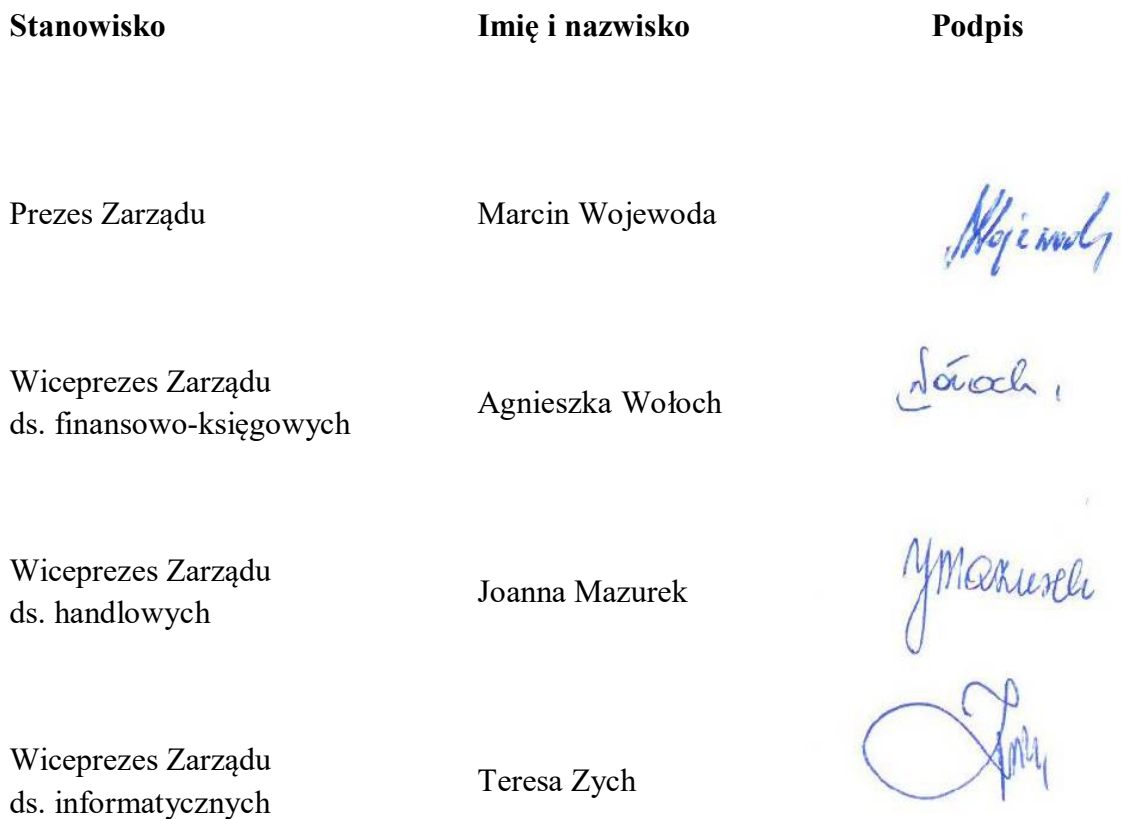 Stanowisko Imię i nazwisko Podpis
Prezes Zarządu Marcin Wojewoda
Wiceprezes Zarządu
ds. finansowo-księgowych Agnieszka Wołoch
Wiceprezes Zarządu
ds. handlowych Joanna Mazurek JMazurek
Wiceprezes Zarządu
ds. informatycznych Teresa Zych